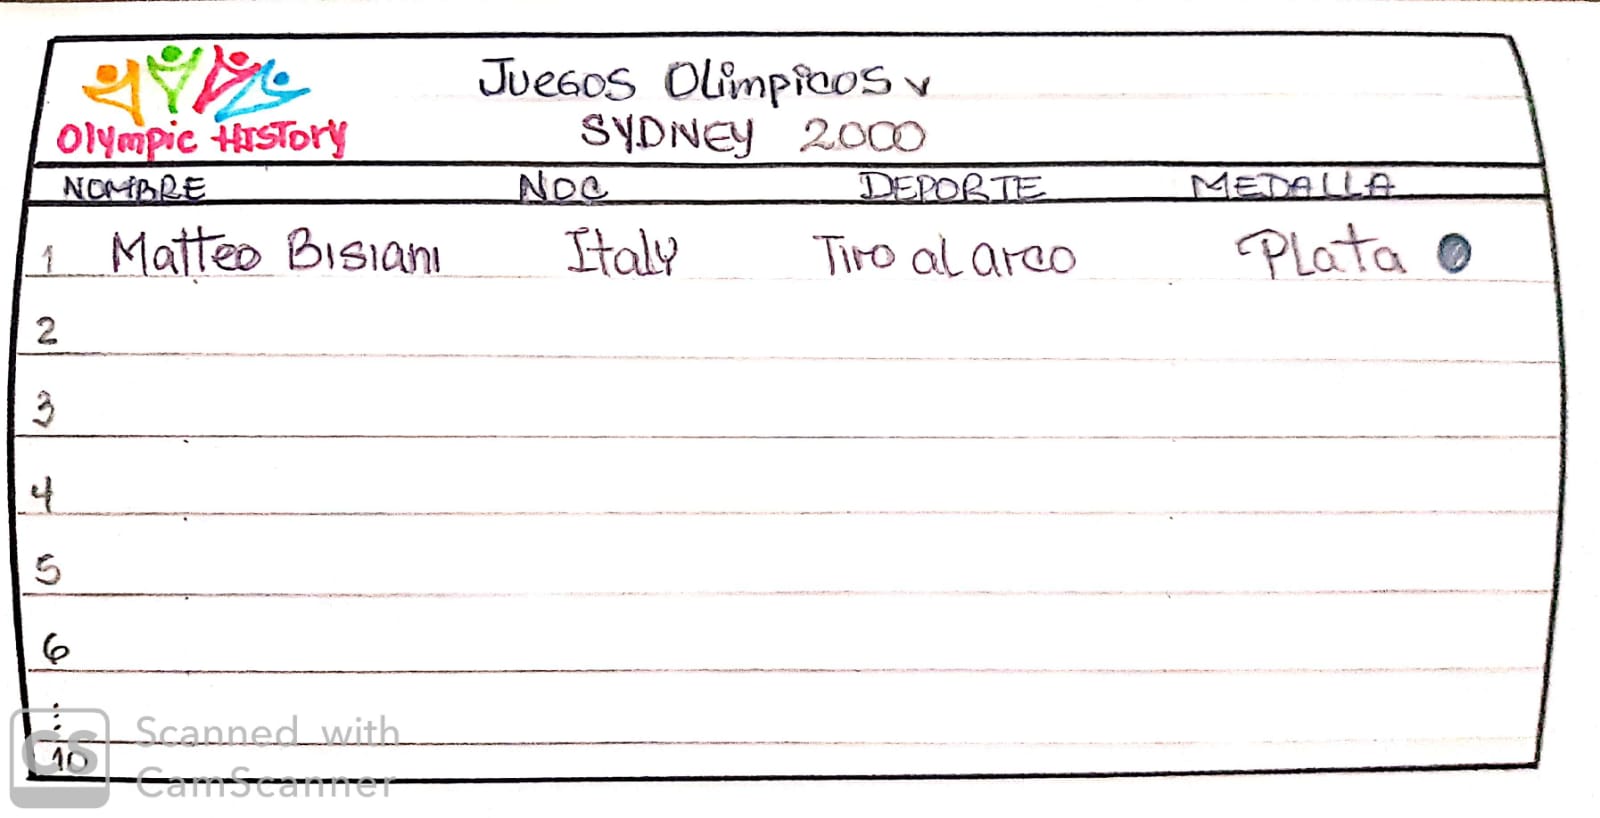 Olympic HISTory
Juegos Olimpicos v
SYDNEY 2000
NOMBRE NOC DEPORTE MEDALLA
1 Matteo Bisiani Italy Tiro al arco Plata
2
3
4
5
6
:
10
CS Scanned with
CamScanner